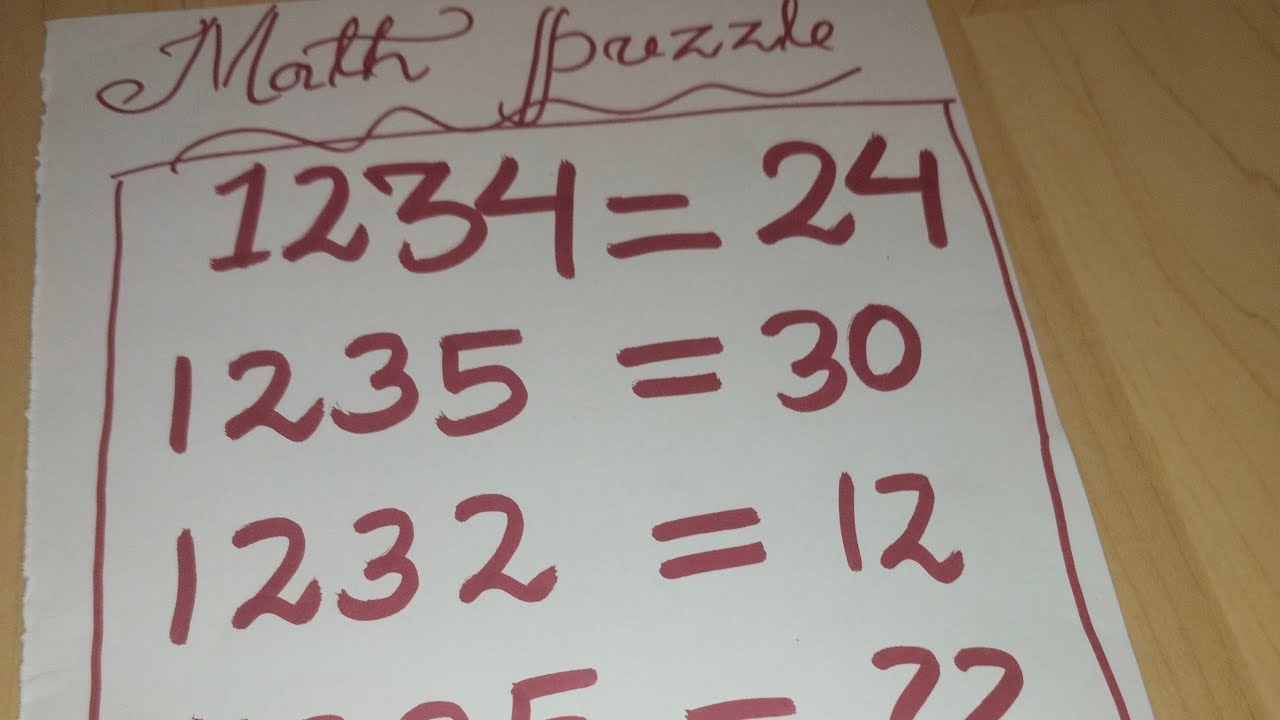 Math puzzle
1234 = 24
1235 = 30
1232 = 12